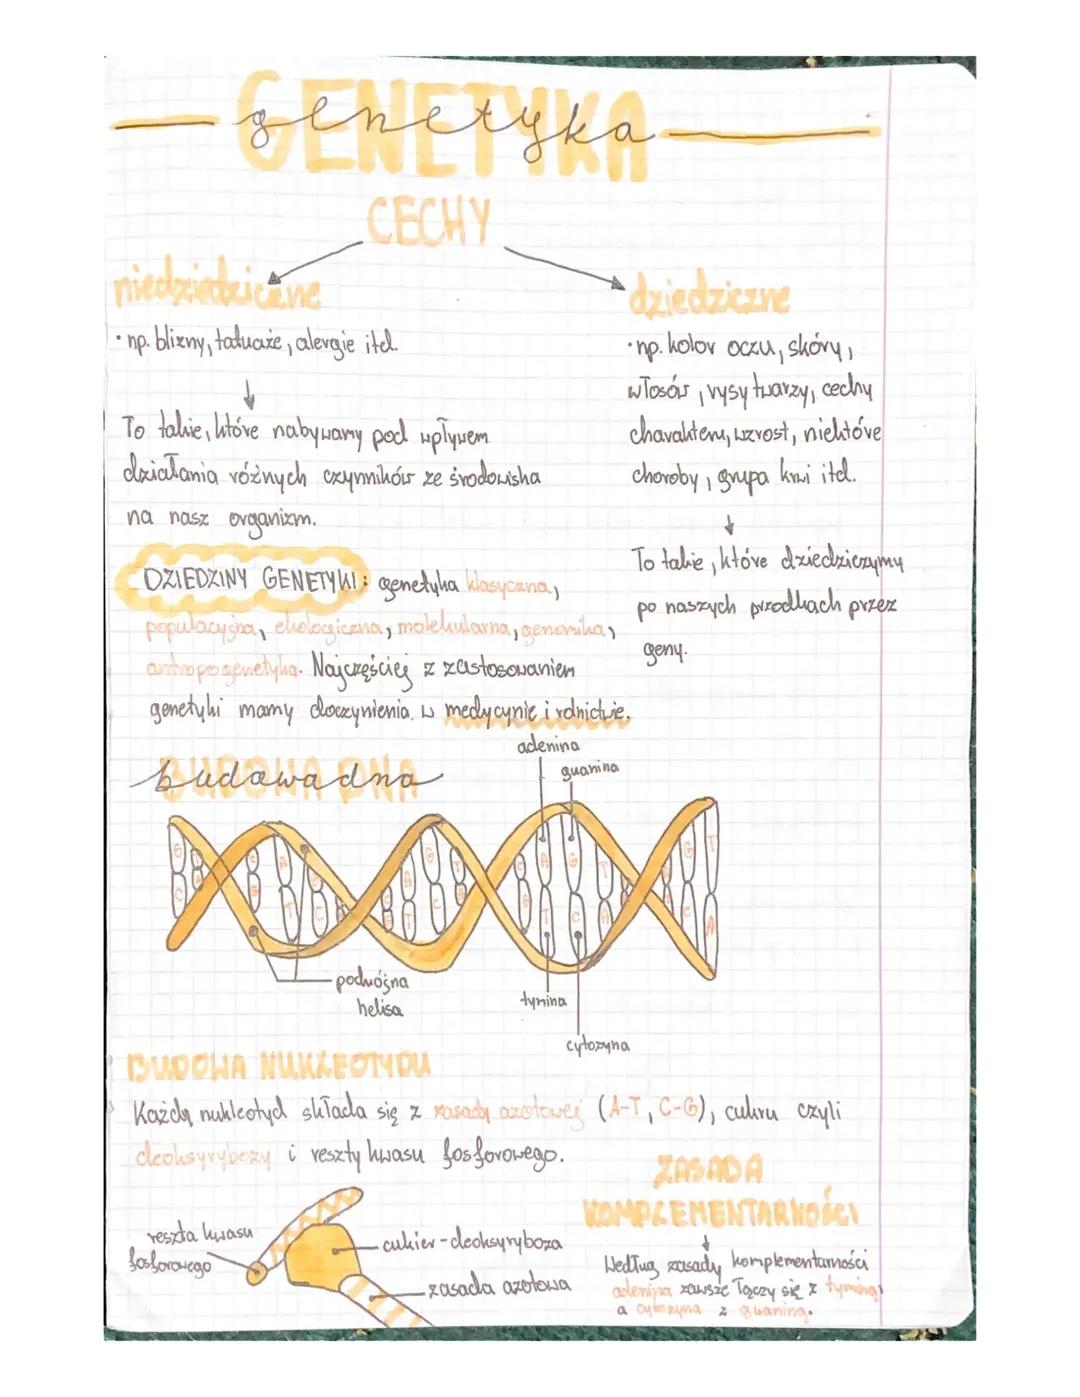 GENETYKA
genetyka
CECHY
niedziedziczne
• np. blizny, tatuaże, alergie itd.
To takie, które nabywamy pod wpływem
działania różnych czynników ze środowiska
na nasz organizm.
dziedziczne
• np. kolor oczu, skóry,
włosów, rysy twarzy, cechy
charakteru, wzrost, niektóre
choroby, grupa krwi itd.
To takie, które dziedziczymy
po naszych przodkach przez
geny.
DZIEDZINY GENETYKI: genetyka klasyczna,
populacyjna, ekologiczna, molekularna, genomika,
antropogenetyka. Najczęściej z zastosowaniem
genetyki mamy doczynienia w medycynie i rolnictwie.
BUDOWA DNA
budowa dna
adenina
guanina
podwójna
helisa
tymina
cytozyna
BUDOWA NUKLEOTYDU
Każdy nukleotyd składa się z zasady azotowej (A-T, C-G), cukru czyli
deoksyrybozy i reszty kwasu fosforowego.
reszta kwasu
fosforowego
cukier - deoksyryboza
zasada azotowa
ZASADA
KOMPLEMENTARNOŚCI
Według zasady komplementarności
adenina zawsze łączy się z tyminą,
a cytozyna z guaniną.